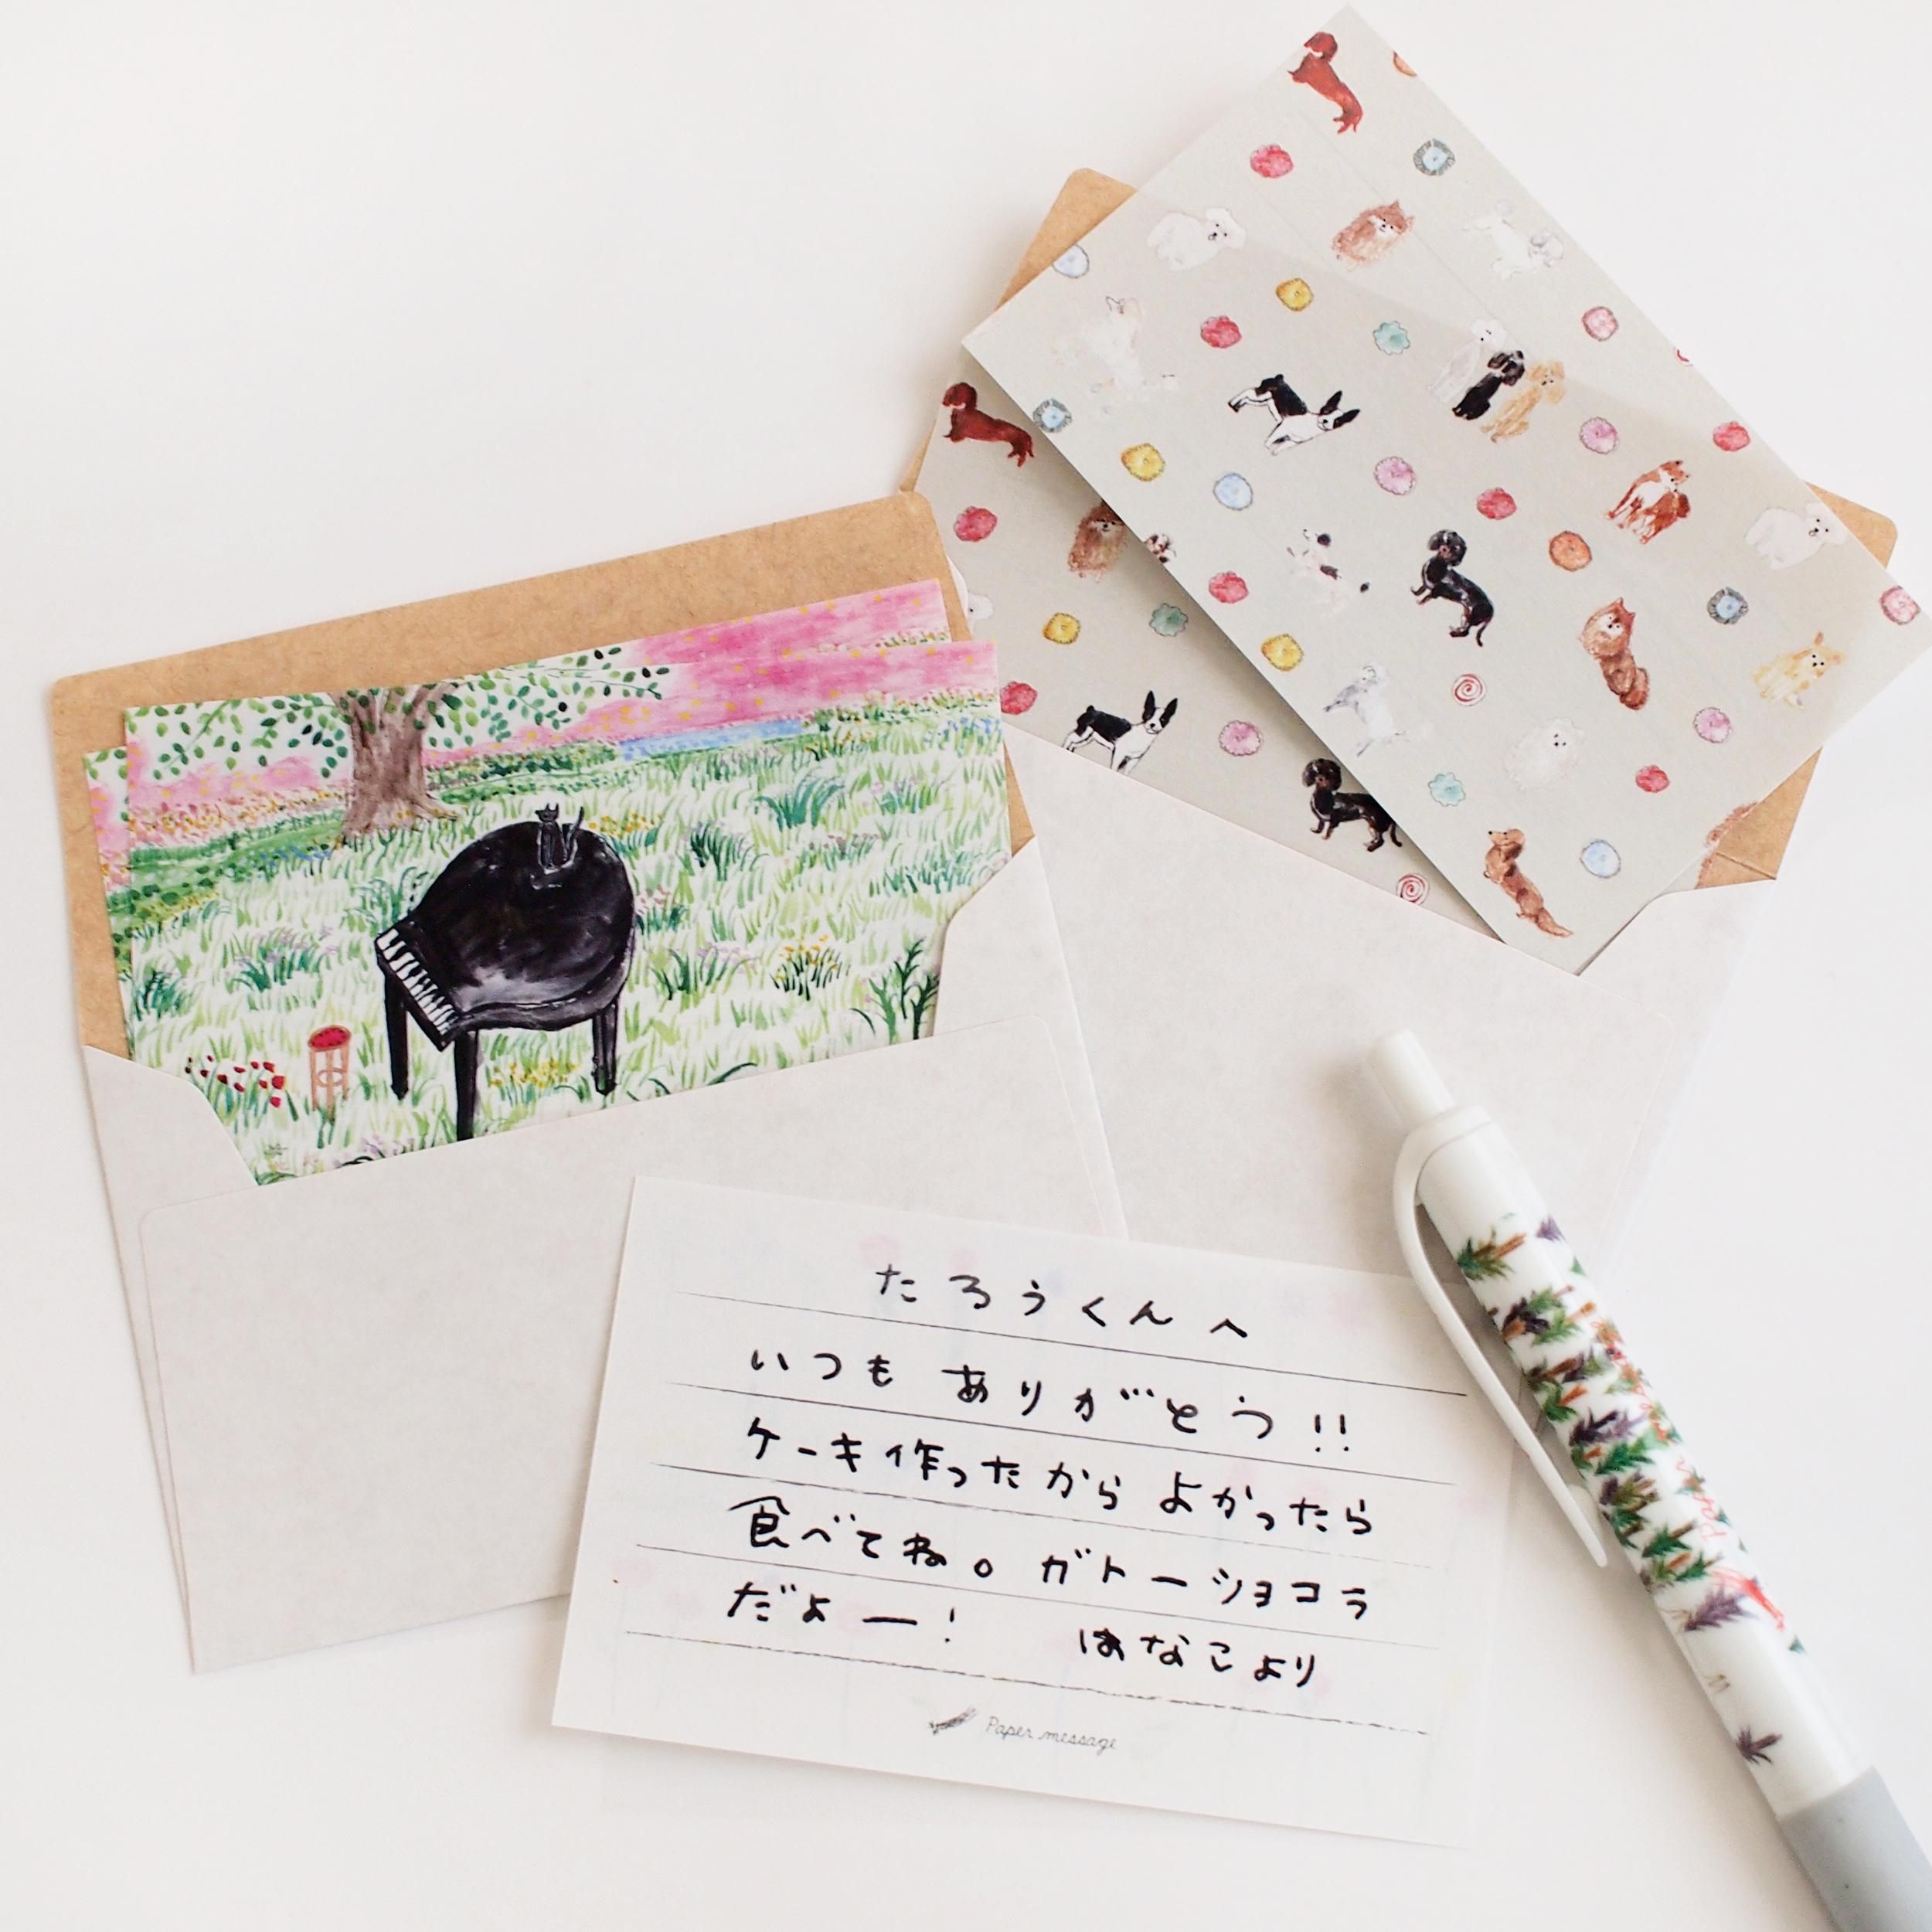 たろうくんへ
いつも ありがとう!!
ケーキ作ったから よかったら
食べてね。ガトーショコラ
だよー! はなこより
Paper message